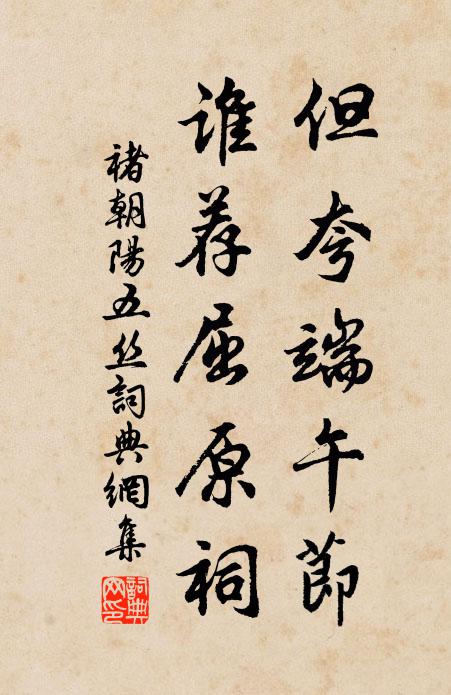 但夸端午節
谁荐屈原祠
褚朝陽五丝詞典網集
詞典網印